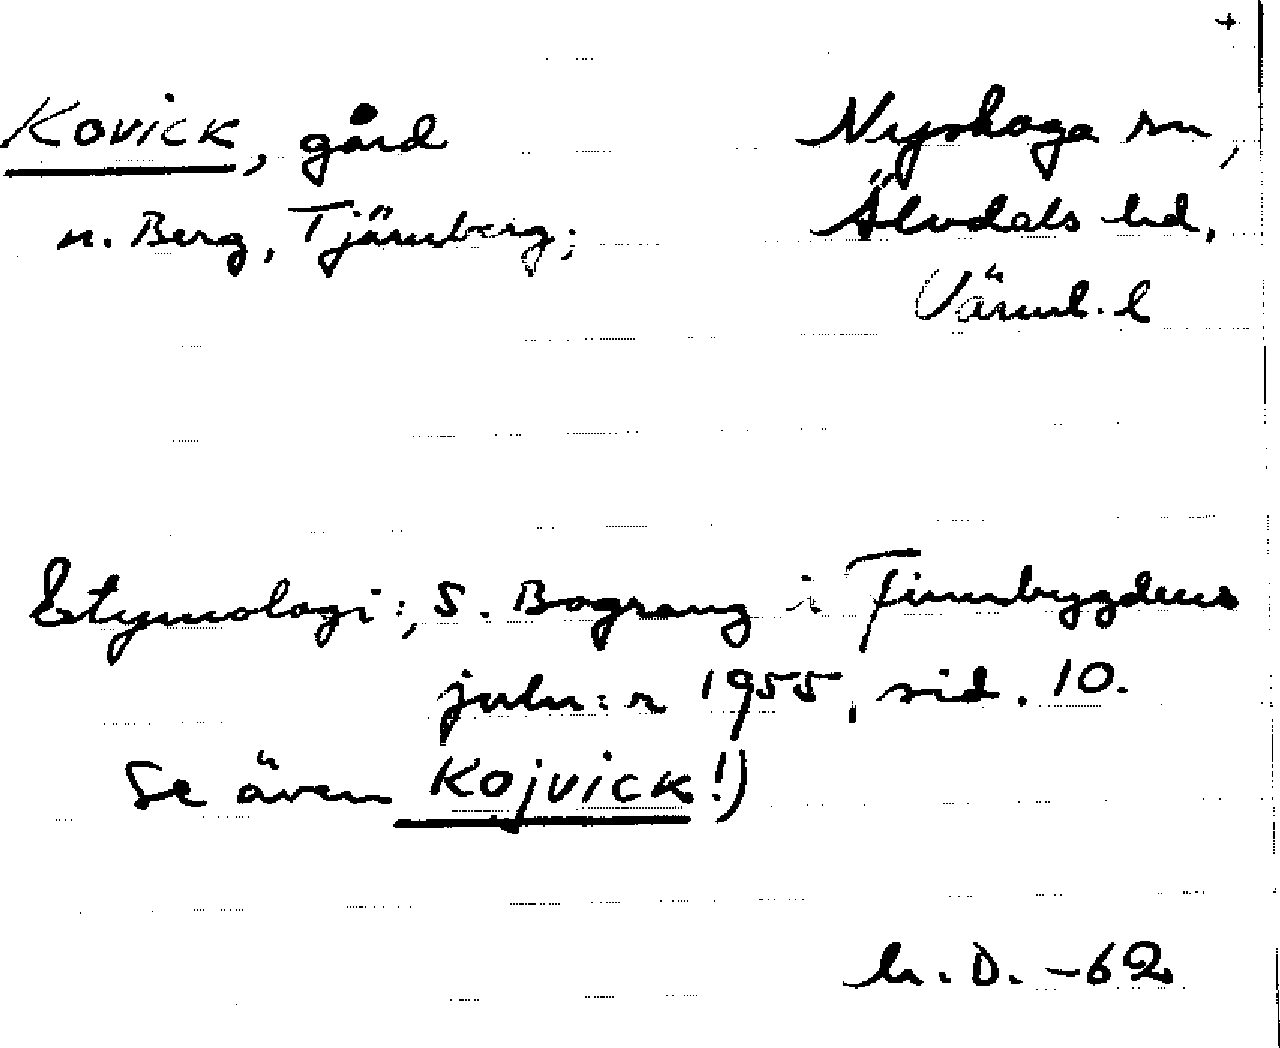 +
Kovick, gård
Nyskoga sn,
n. Berg, Tjärnberg;
Älvdals hd,
Värml. l
Etymologi:, S. Bograng i Finnbygdens
juln:r 1955, sid. 10.
Se även Kojvick!)
h.D. -62